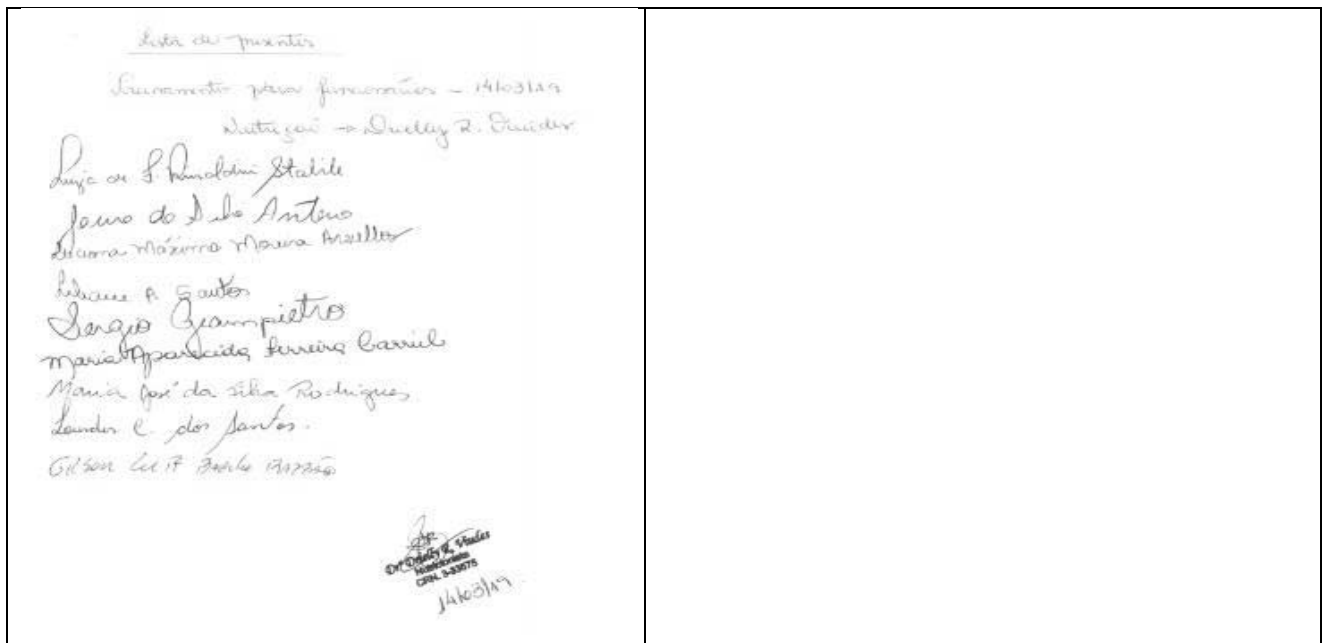 Lista de presentes
Treinamento para funcionários - 14/03/19
Nutrição → Drielly R.
Luiza de F. Rinaldini Stabile
da Silva Antero
Luciana Máximo Moura
Liliane A. Santos
Sergio Giampietro
Maria Aparecida Ferreira Carriel
Maria José da Silva Rodrigues
Lourdes C. dos Santos.
Gilson Luiz
Drª Drielly R.
Nutricionista
CRN. 3-33575
14/03/19